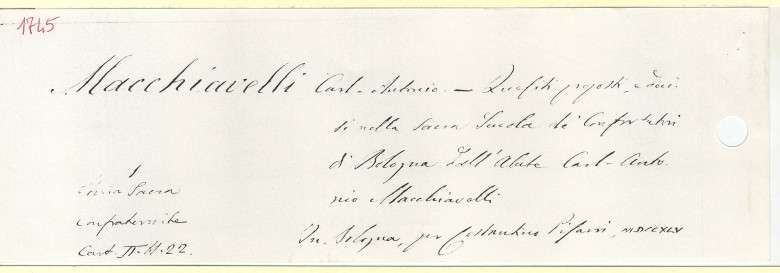 1745
Macchiavelli Carl-Antonio. — Quesiti proposti, e deci-
si nella Sacra Scuola de' Confortatori
di Bologna dall'Abate Carl-Anto-
nio Macchiavelli
In Bologna, per Costantino Pisarri, MDCCXLV
1
Sacra
confraternite
Cart. II. N. 22.